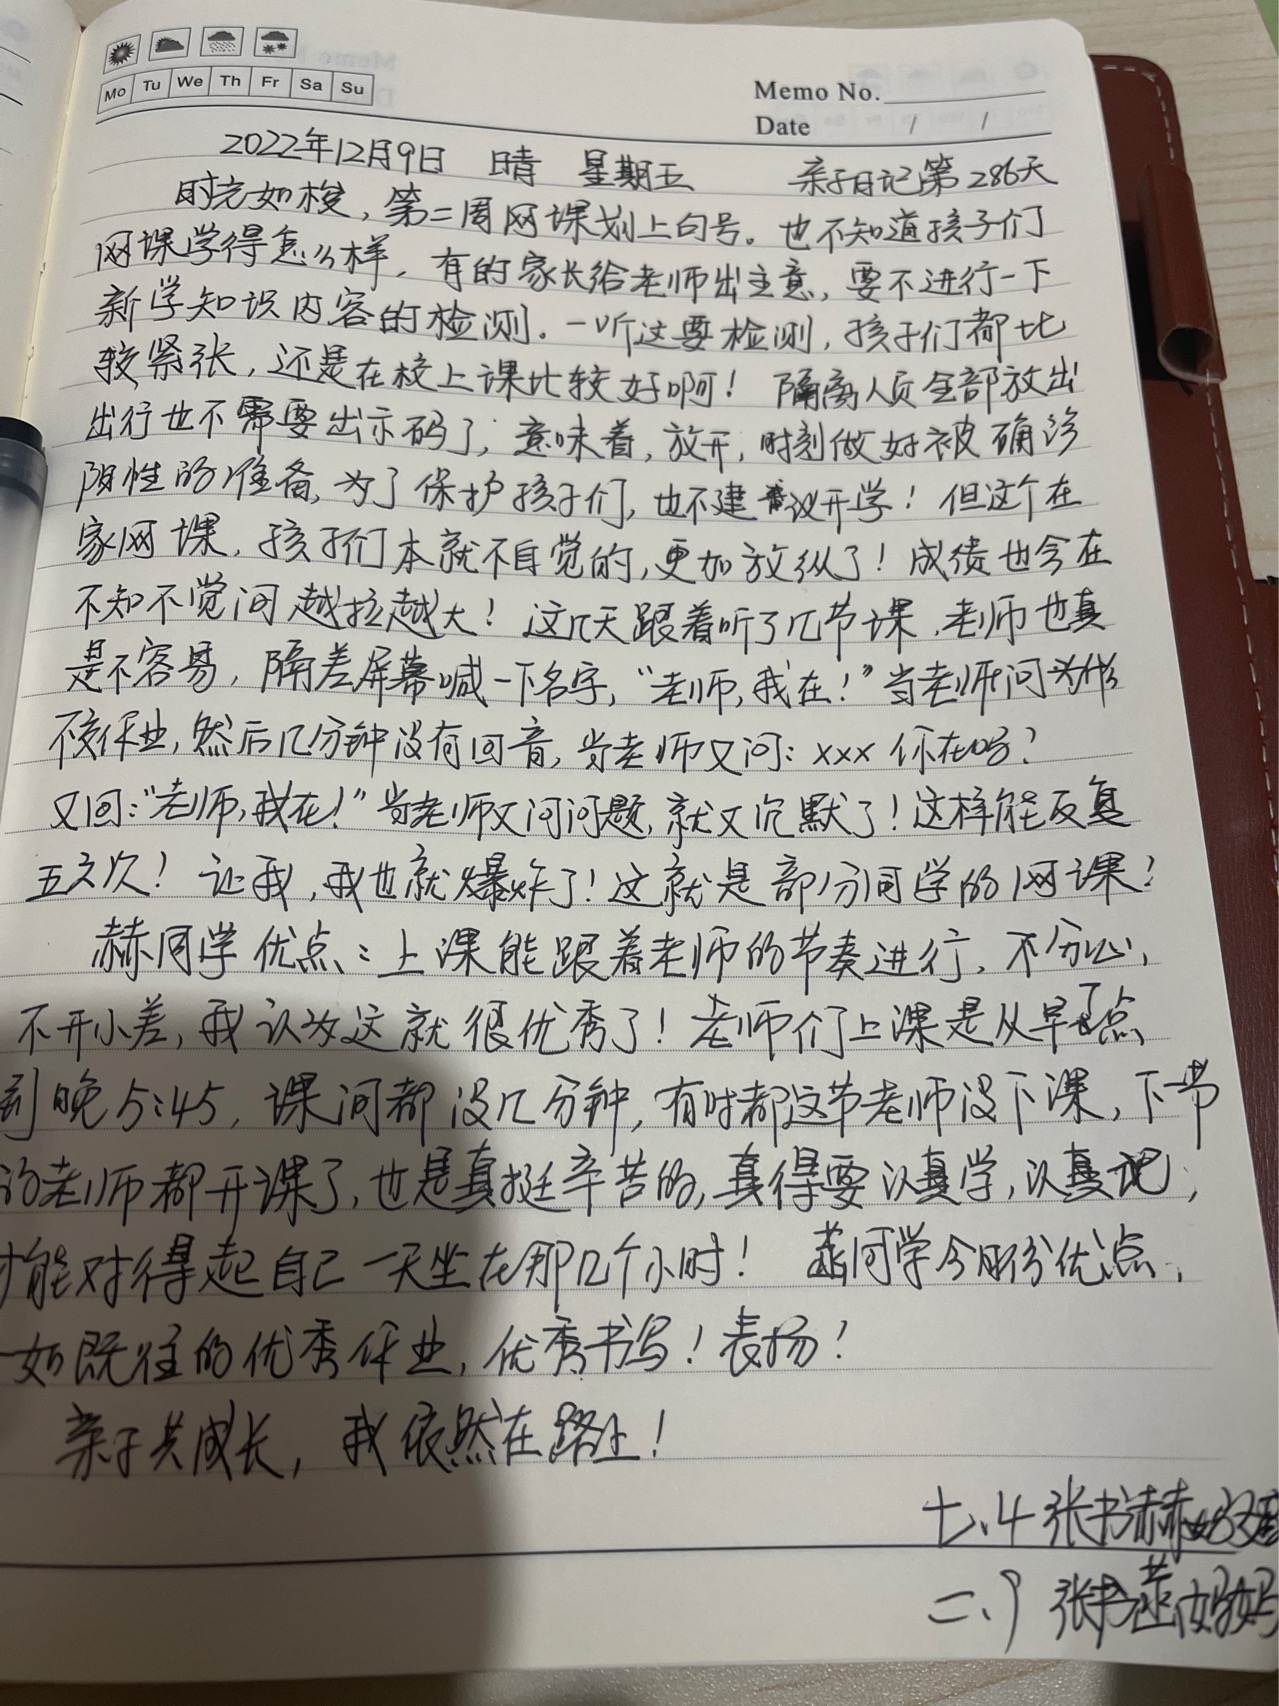 Mo Tu We Th Fr Sa Su
Memo No.
Date / /
2022年12月9日 晴 星期五 亲子日记第286天
时光如梭，第二周网课划上句号。也不知道孩子们
网课学得怎么样，有的家长给老师出主意，要不进行一下
新学知识内容的检测．一听这要检测，孩子们都比
较紧张，还是在校上课比较好啊！隔离人员全部放出
出行也不需要出示码了，意味着，放开，时刻做好被确诊
阳性的准备，为了保护孩子们，也不建议开学！但这个在
家网课，孩子们本就不自觉的，更加放纵了！成绩也会在
不知不觉间越拉越大！这几天跟着听了几节课，老师也真
是不容易，隔差屏幕喊一下名字，“老师，我在！”当老师问为什么
不交作业，然后几分钟没有回音，当老师又问：xxx你在吗？
又回：“老师，我在！”当老师又问问题，就又沉默了！这样能反复
五六次！让我，我也就爆炸了！这就是部分同学的网课！
赫同学优点：上课能跟着老师的节奏进行，不分心，
不开小差，我认为这就很优秀了！老师们上课是从早点
到晚5:45，课间都没几分钟，有时都这节老师没下课，下一节
的老师都开课了，也是真挺辛苦的，真得要认真学，认真记，
才能对得起自己一天坐在那几个小时！同学今明优点，
一如既往的优秀作业，优秀书写！表扬！
亲子共成长，我依然在路上！
七.4 张书赫妈妈
二.9 张书妈妈